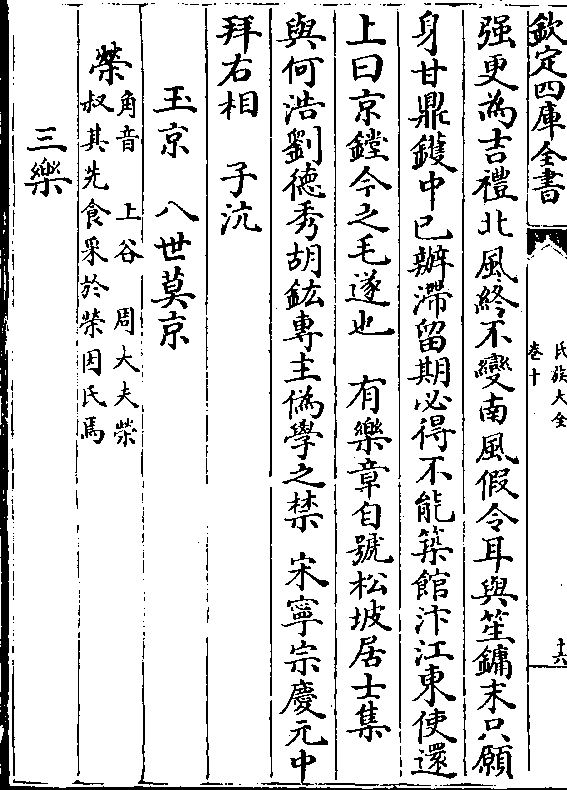 欽定四庫全書
氏族大全
卷十
十六
强更為吉禮北風終不變南風假令耳與笙鏞末只願
身甘鼎鑊中已辦滯留期必得不能築館汴江東使還
上曰京鏜今之毛遂也　有樂章自號松坡居士集
與何浩劉德秀胡鋐專主偽學之禁　宋寧宗慶元中
拜右相　子沆
玉京　八世莫京
榮 角音　上谷　周大夫榮
叔其先食采於榮因氏焉
三樂